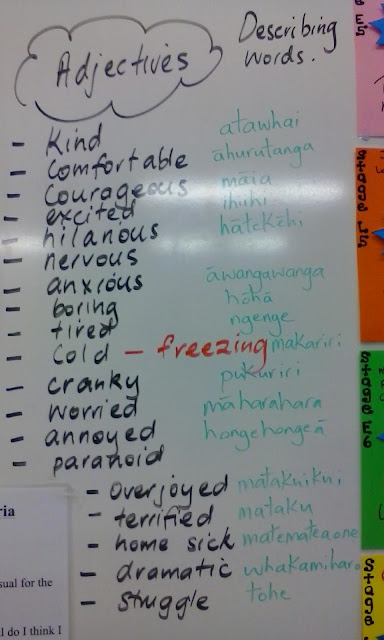 Adjectives
Describing words.
- kind atawhai
- comfortable āhurutanga
- courageous māia
- excited ihiihi
- hilarious hātekēhi
- nervous
- anxious āwangawanga
- boring hōhā
- tired ngenge
- cold - freezing makariri
- cranky pukuriri
- worried māharahara
- annoyed hongehongeā
- paranoid
- overjoyed matakuikui
- terrified mataku
- home sick matemateaone
- dramatic whakamiharo
- struggle tohe
ria
sual for the
l do I think I
Stage E5
Stage E6
Stage